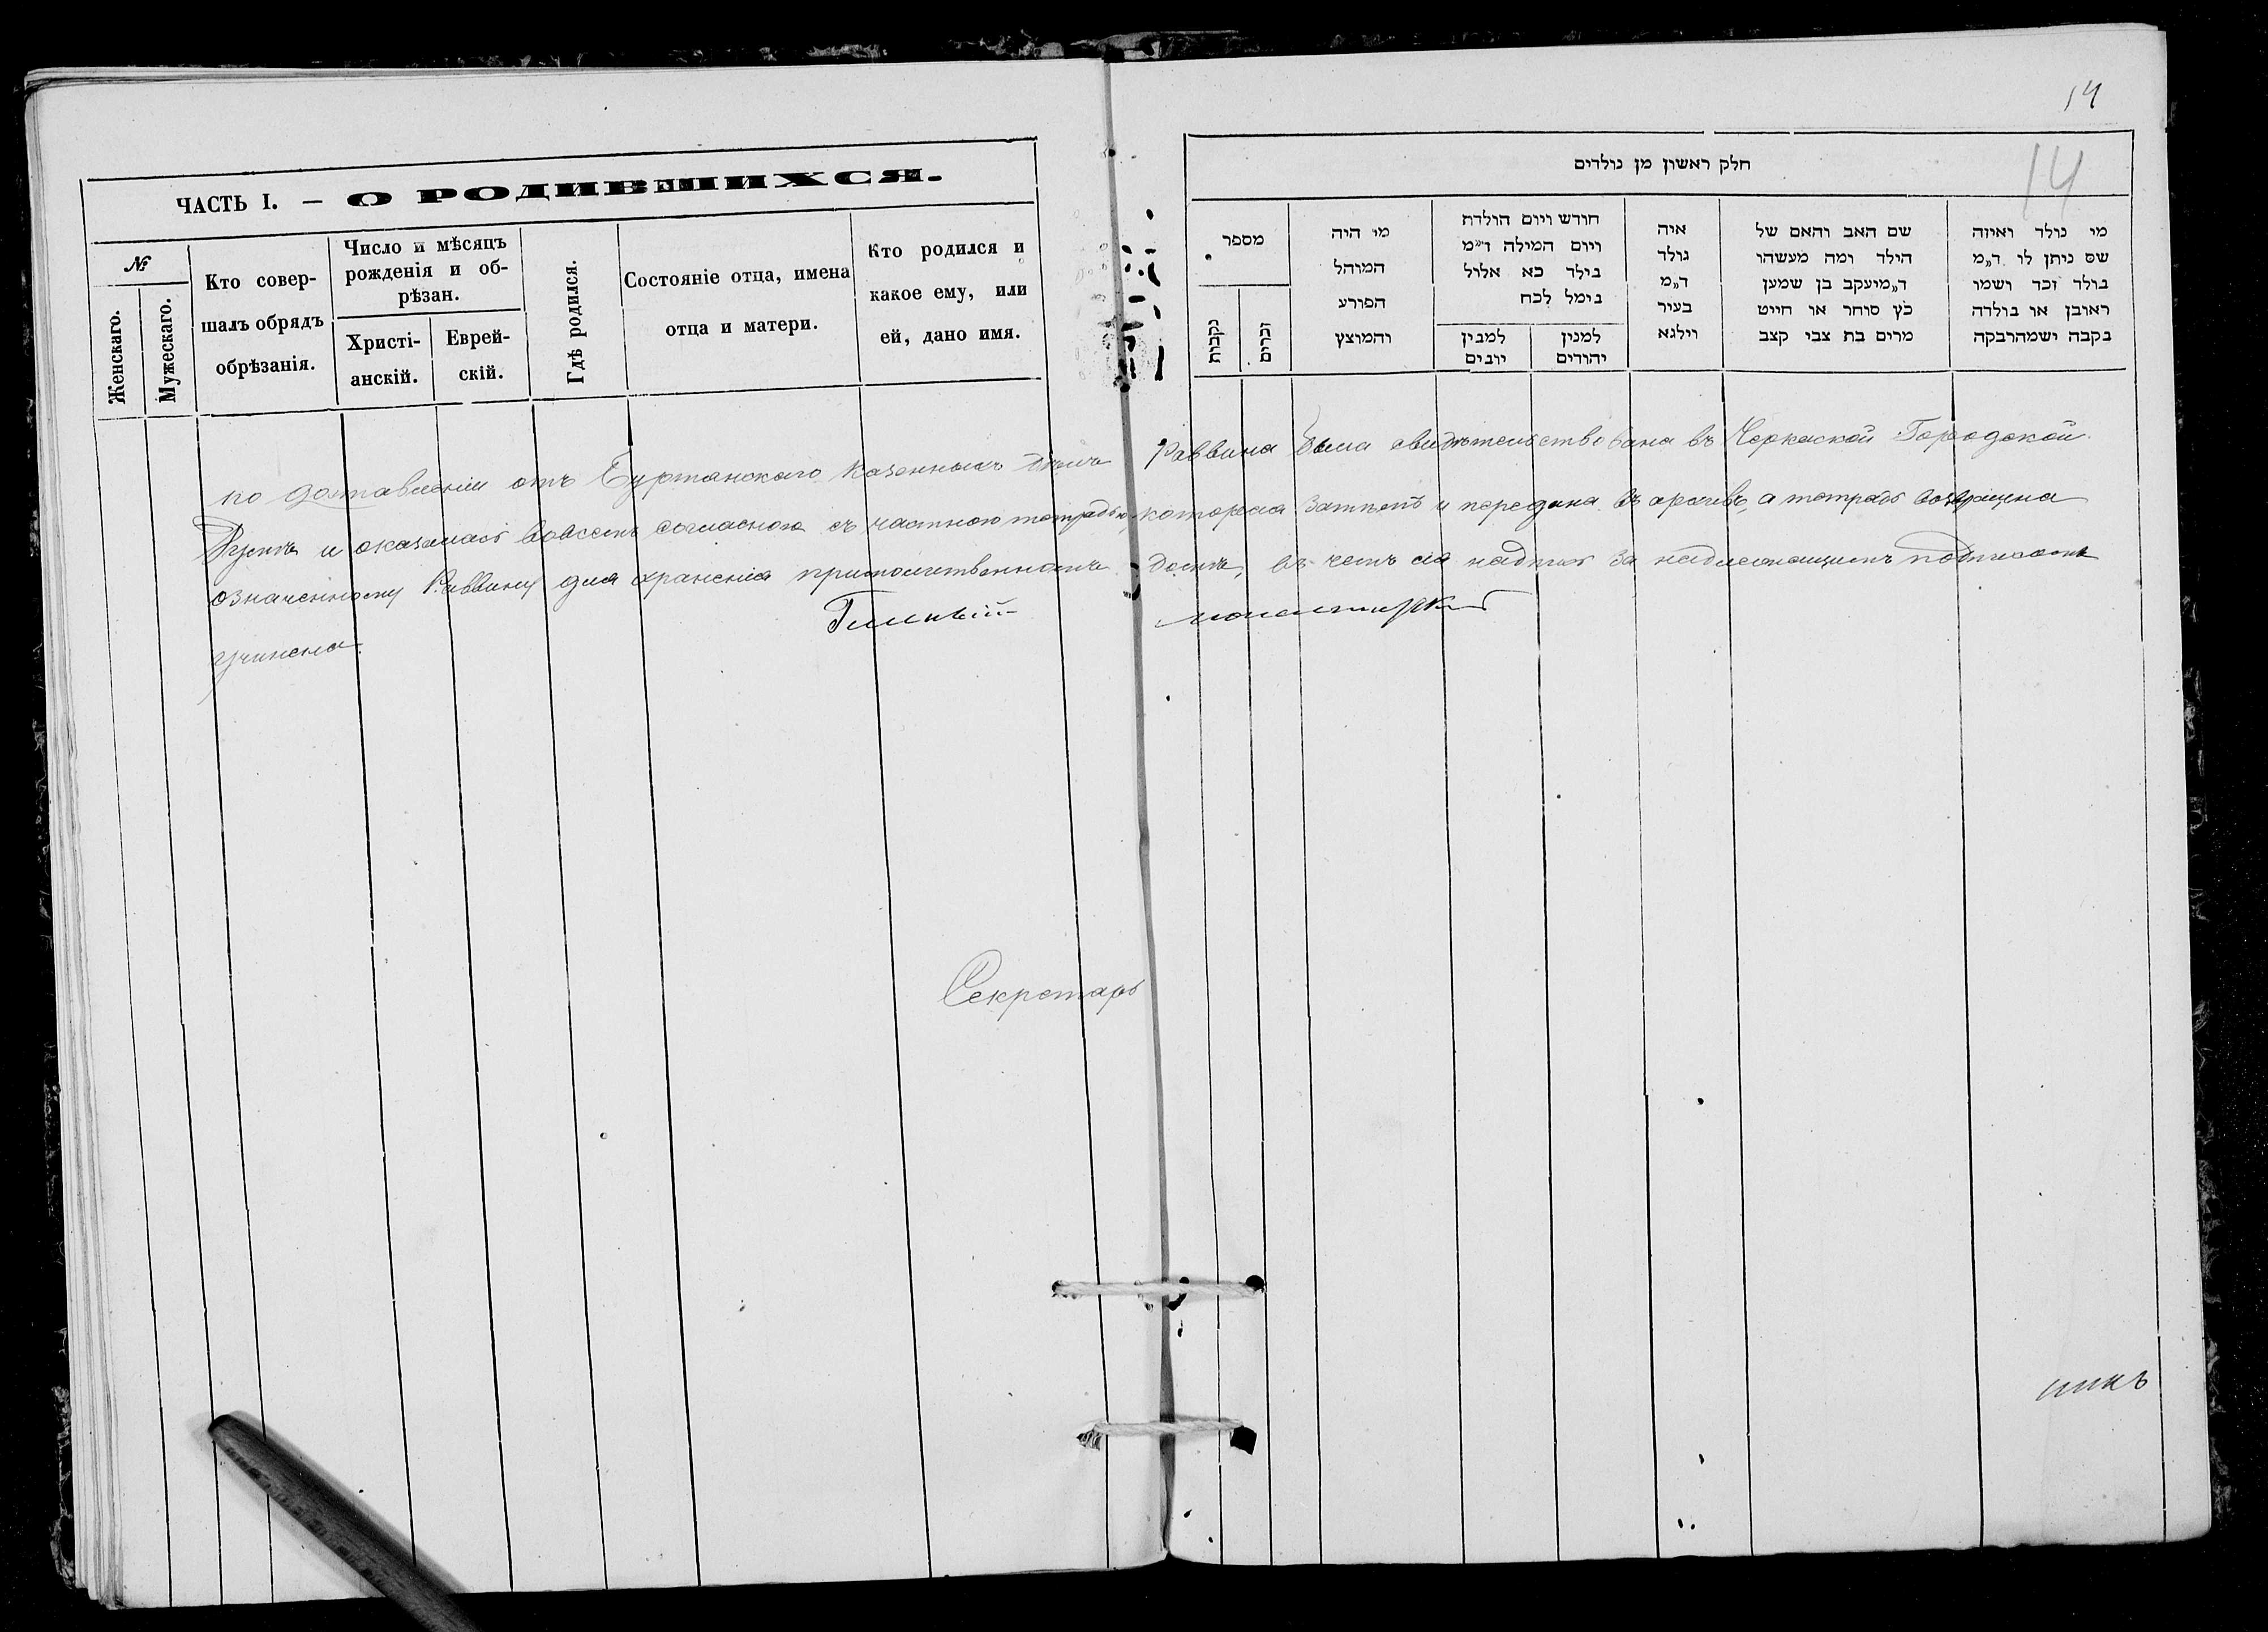 14
14
ЧАСТЬ I. — О РОДИВШИХСЯ.
№
Женскаго.
Мужескаго.
Кто совер-
шалъ обрядъ
обрѣзанія.
Число и мѣсяцъ
рожденія и об-
рѣзан.
Христі-
анскій.
Еврей-
скій.
Гдѣ родился.
Состояніе отца, имена
отца и матери.
Кто родился и
какое ему, или
ей, дано имя.
חלק ראשון מן נולדים
מספר
נקבות
זכרים
מי היה
המוהל
הפורע
והמוצץ
חודש ויום הולדת
ויום המילה ד״מ
בילד כא אלול
בימל לכח
למנין
יהודים
למבין
יובים
איה
גולד
ד״מ
בעיר
וילגא
שם האב והאם של
הילד ומה מעשהו
ד״מיעקב בן שמען
כץ סוחר או חייט
מרים בת צבי קצב
מי נולד ואיזה
שם ניתן לו ד״מ
בולד זכד ושמו
ראובן או בולדה
בקבה ישמהרבקה
по доставленіи отъ Буртянскаго казеннаго Раввина была свидѣтельствована въ Черкаской Городской
Думѣ и оказалась вовсемъ согласною съ частною тетрадью, которая затѣмъ и передана въ архивъ, а тетрадь возвращена
означенному Раввину для храненія при молитвенномъ домѣ, въ чемъ сія надпись за надлежащимъ подписомъ
учинена.
Секретарь